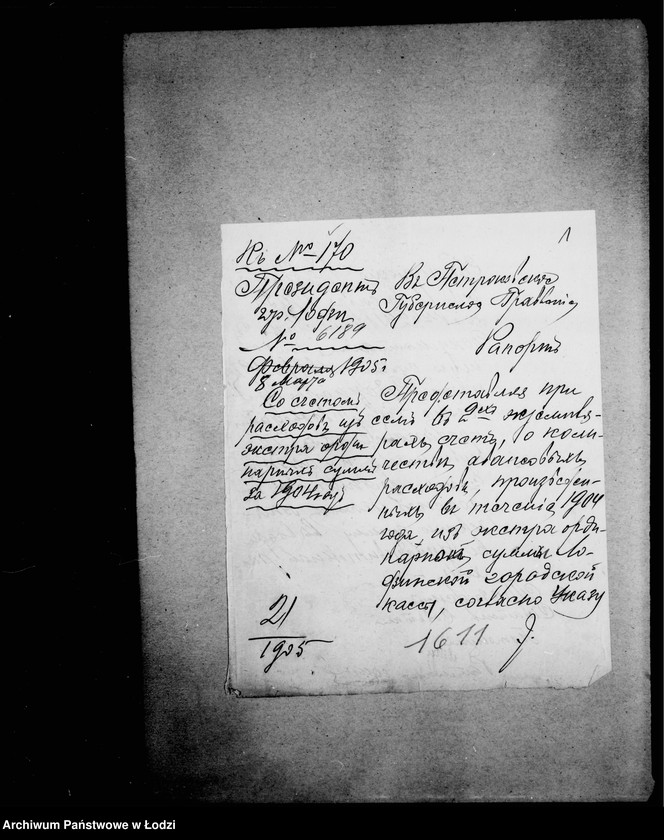 1
Къ № 170
Президентъ
гор. Лодзи
№ 6189
Февраля 1905 г.
8 Марта
Со счетомъ
расходовъ изъ
экстра орди
нарныхъ суммъ
за 1904 годъ
21
1905
Въ Петроковское
Губернское Правленіе
Рапортъ
Представляя при
семъ въ 2хъ экземпля-
рахъ счетъ, о коли-
честве авансовыхъ
расходовъ, произведен-
ныхъ въ теченіе 1904
года, изъ экстра орди-
нарной суммы Ло-
дзинской городской
кассы, согласно Указу
1611
Archiwum Państwowe w Łodzi